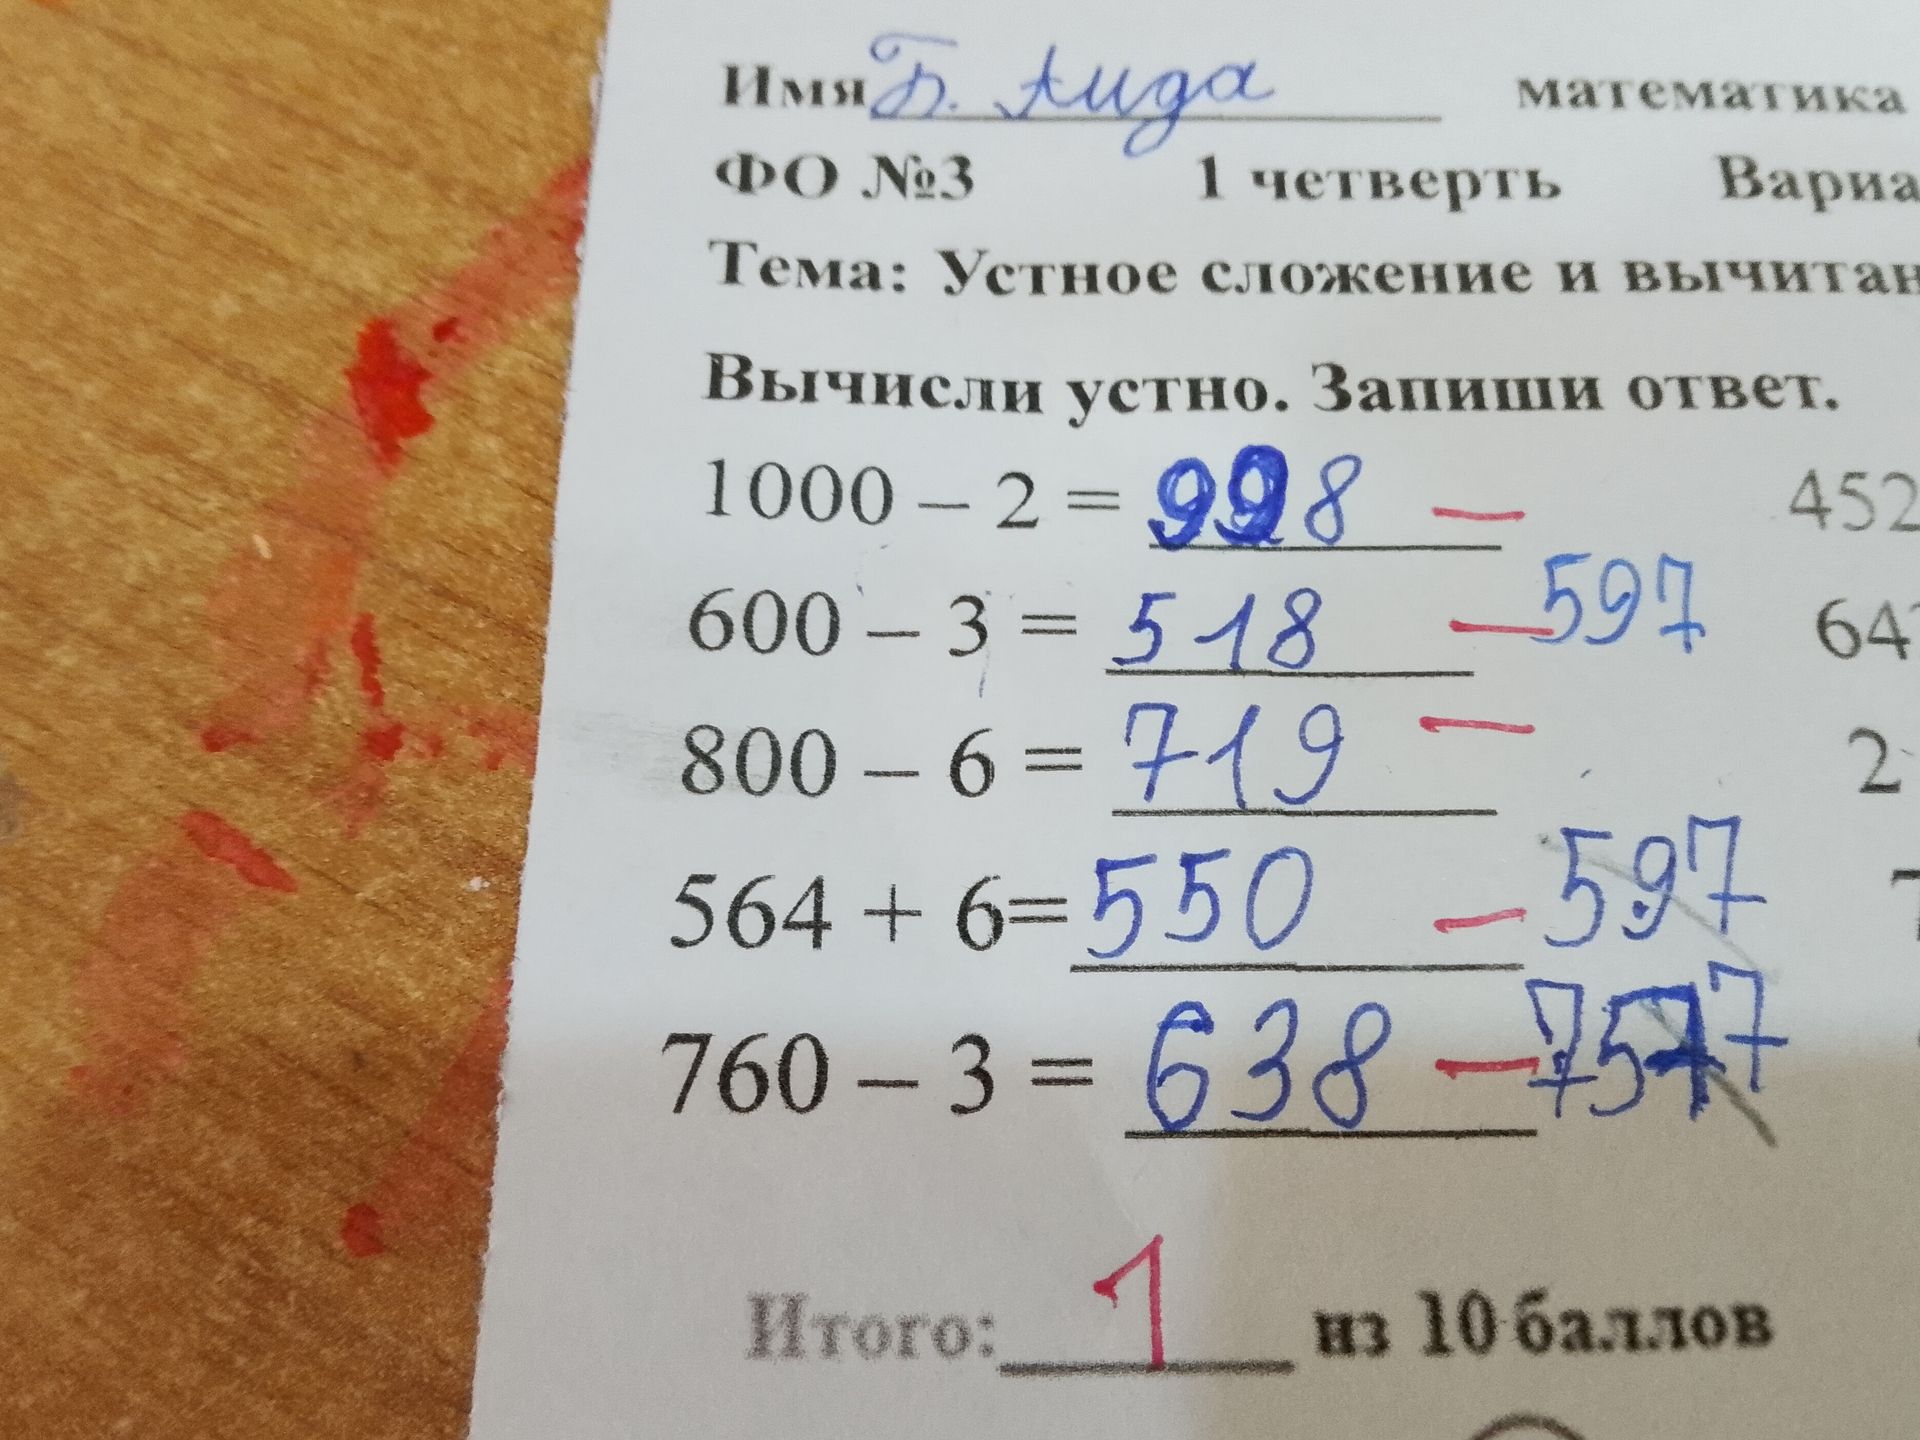 Имя Б. Аида математика
ФО №3 1 четверть Вариа
Тема: Устное сложение и вычитан
Вычисли устно. Запиши ответ.
1000 – 2 = 998 — 452
600 – 3 = 518 — 597 64
800 – 6 = 719 — 2
564 + 6= 550 — 597 7
760 – 3 = 638 — 757
Итого: 1 из 10 баллов